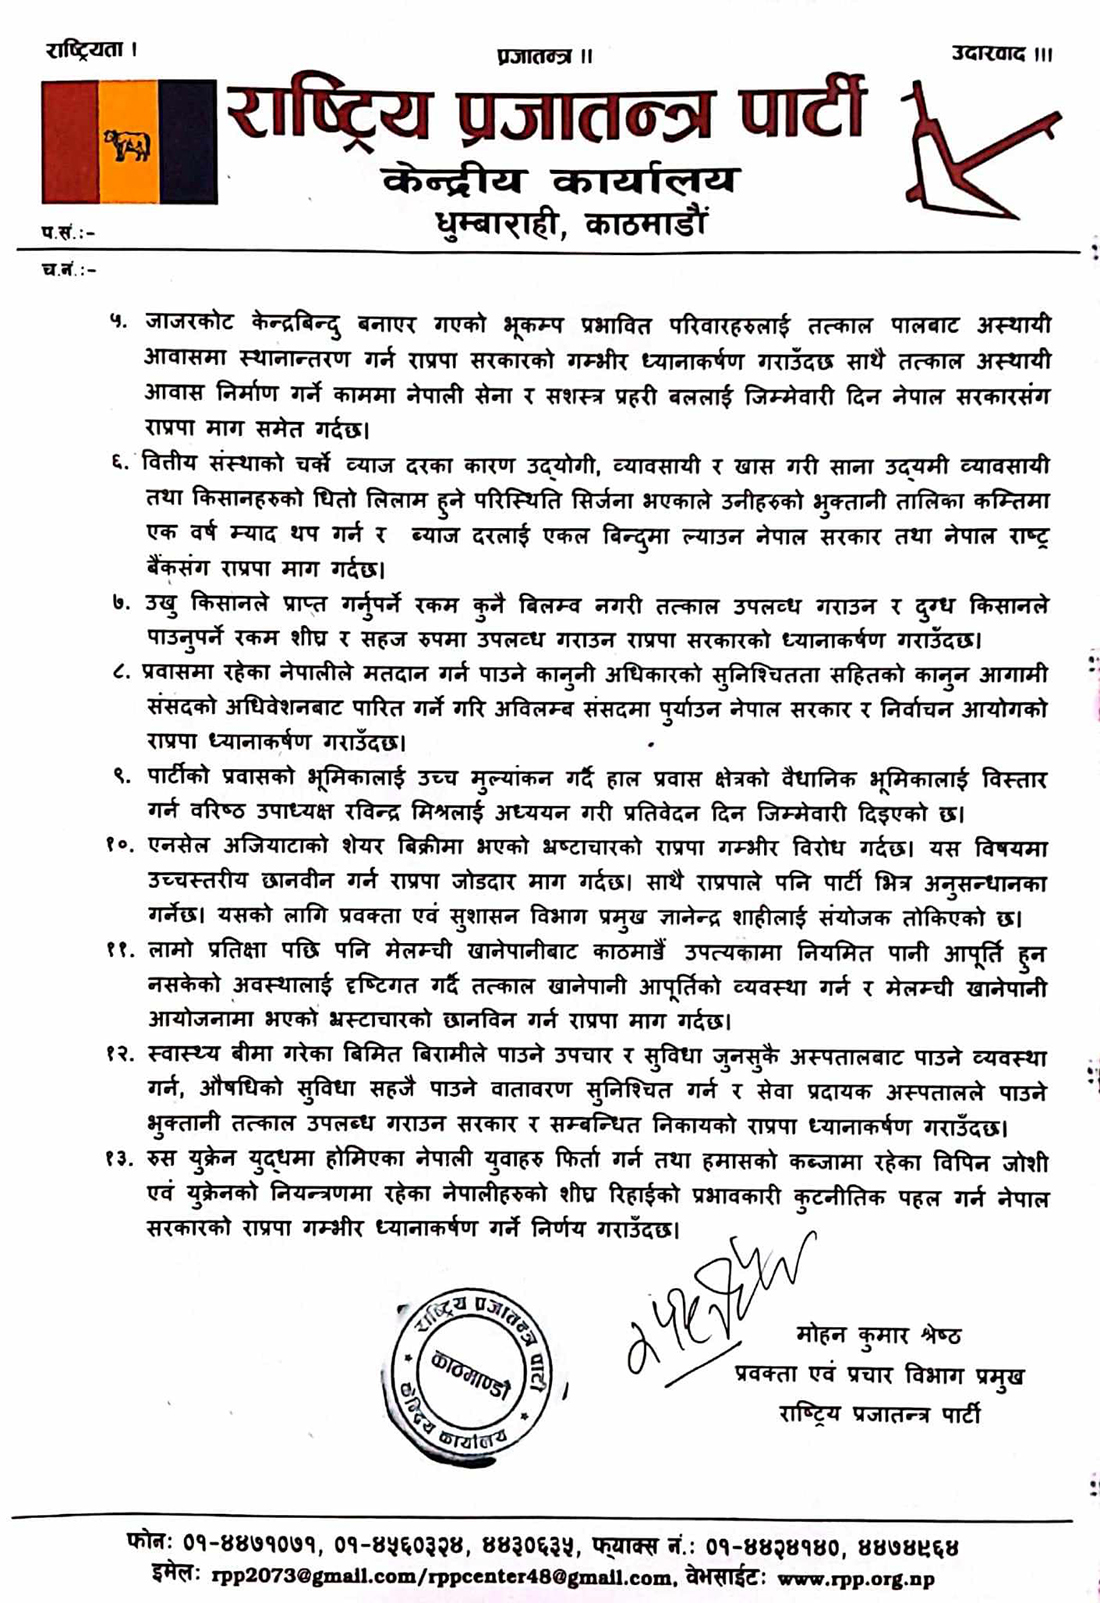 राष्ट्रियता ।
प्रजातन्त्र ॥
उदारवाद ।॥
राष्ट्रिय प्रजातन्त्र पार्टी
केन्द्रीय कार्यालय
धुम्बाराही, काठमाडौं
प.सं.:-
च.नं.:-
५. जाजरकोट केन्द्रबिन्दु बनाएर गएको भूकम्प प्रभावित परिवारहरुलाई तत्काल पालबाट अस्थायी
आवासमा स्थानान्तरण गर्न राप्रपा सरकारको गम्भीर ध्यानाकर्षण गराउँदछ साथै तत्काल अस्थायी
आवास निर्माण गर्ने काममा नेपाली सेना र सशस्त्र प्रहरी बललाई जिम्मेवारी दिन नेपाल सरकारसंग
राप्रपा माग समेत गर्दछ।
६. वित्तीय संस्थाको चर्को व्याज दरका कारण उद्योगी, व्यावसायी र खास गरी साना उद्यमी व्यावसायी
तथा किसानहरुको धितो लिलाम हुने परिस्थिति सिर्जना भएकाले उनीहरुको भुक्तानी तालिका कम्तिमा
एक वर्ष म्याद थप गर्न र ब्याज दरलाई एकल बिन्दुमा ल्याउन नेपाल सरकार तथा नेपाल राष्ट्र
बैंकसंग राप्रपा माग गर्दछ।
७. उखु किसानले प्राप्त गर्नुपर्ने रकम कुनै बिलम्व नगरी तत्काल उपलव्ध गराउन र दुग्ध किसानले
पाउनुपर्ने रकम शीघ्र र सहज रुपमा उपलव्ध गराउन राप्रपा सरकारको ध्यानाकर्षण गराउँदछ।
८. प्रवासमा रहेका नेपालीले मतदान गर्न पाउने कानुनी अधिकारको सुनिश्चितता सहितको कानुन आगामी
संसदको अधिवेशनबाट पारित गर्ने गरि अविलम्ब संसदमा पुर्याउन नेपाल सरकार र निर्वाचन आयोगको
राप्रपा ध्यानाकर्षण गराउँदछ।
९. पार्टीको प्रवासको भूमिकालाई उच्च मुल्यांकन गर्दै हाल प्रवास क्षेत्रको वैधानिक भूमिकालाई विस्तार
गर्न वरिष्ठ उपाध्यक्ष रविन्द्र मिश्रलाई अध्ययन गरी प्रतिवेदन दिन जिम्मेवारी दिइएको छ।
१०. एनसेल अजियाटाको शेयर बिक्रीमा भएको भ्रष्टाचारको राप्रपा गम्भीर विरोध गर्दछ। यस विषयमा
उच्चस्तरीय छानवीन गर्न राप्रपा जोडदार माग गर्दछ। साथै राप्रपाले पनि पार्टी भित्र अनुसन्धानका
गर्नेछ। यसको लागि प्रवक्ता एवं सुशासन विभाग प्रमुख ज्ञानेन्द्र शाहीलाई संयोजक तोकिएको छ।
११. लामो प्रतिक्षा पछि पनि मेलम्ची खानेपानीबाट काठमाडैं उपत्यकामा नियमित पानी आपूर्ति हुन
नसकेको अवस्थालाई दृष्टिगत गर्दै तत्काल खानेपानी आपूर्तिको व्यवस्था गर्न र मेलम्ची खानेपानी
आयोजनामा भएको भ्रस्टाचारको छानविन गर्न राप्रपा माग गर्दछ।
१२. स्वास्थ्य बीमा गरेका बिमित बिरामीले पाउने उपचार र सुविधा जुनसुकै अस्पतालबाट पाउने व्यवस्था
गर्न, औषधिको सुविधा सहजै पाउने वातावरण सुनिश्चित गर्न र सेवा प्रदायक अस्पतालले पाउने
भुक्तानी तत्काल उपलब्ध गराउन सरकार र सम्बन्धित निकायको राप्रपा ध्यानाकर्षण गराउँदछ।
१३. रुस युक्रेन युद्धमा होमिएका नेपाली युवाहरु फिर्ता गर्न तथा हमासको कब्जामा रहेका विपिन जोशी
एवं युक्रेनको नियन्त्रणमा रहेका नेपालीहरुको शीघ्र रिहाईको प्रभावकारी कुटनीतिक पहल गर्न नेपाल
सरकारको राप्रपा गम्भीर ध्यानाकर्षण गर्ने निर्णय गराउँदछ।
राष्ट्रिय प्रजातन्त्र पार्टी
काठमाण्डौ
केन्द्रिय कार्यालय
मोहन कुमार श्रेष्ठ
प्रवक्ता एवं प्रचार विभाग प्रमुख
राष्ट्रिय प्रजातन्त्र पार्टी
फोन: ०१-४४७१०७१, ०१-४५६०३२४, ४४३०६३५, फ्याक्स नं.: ०१-४४२४१४०, ४४७४९६४
इमेल: rpp2073@gmail.com/rppcenter48@gmail.com, वेभसाईट: www.rpp.org.np